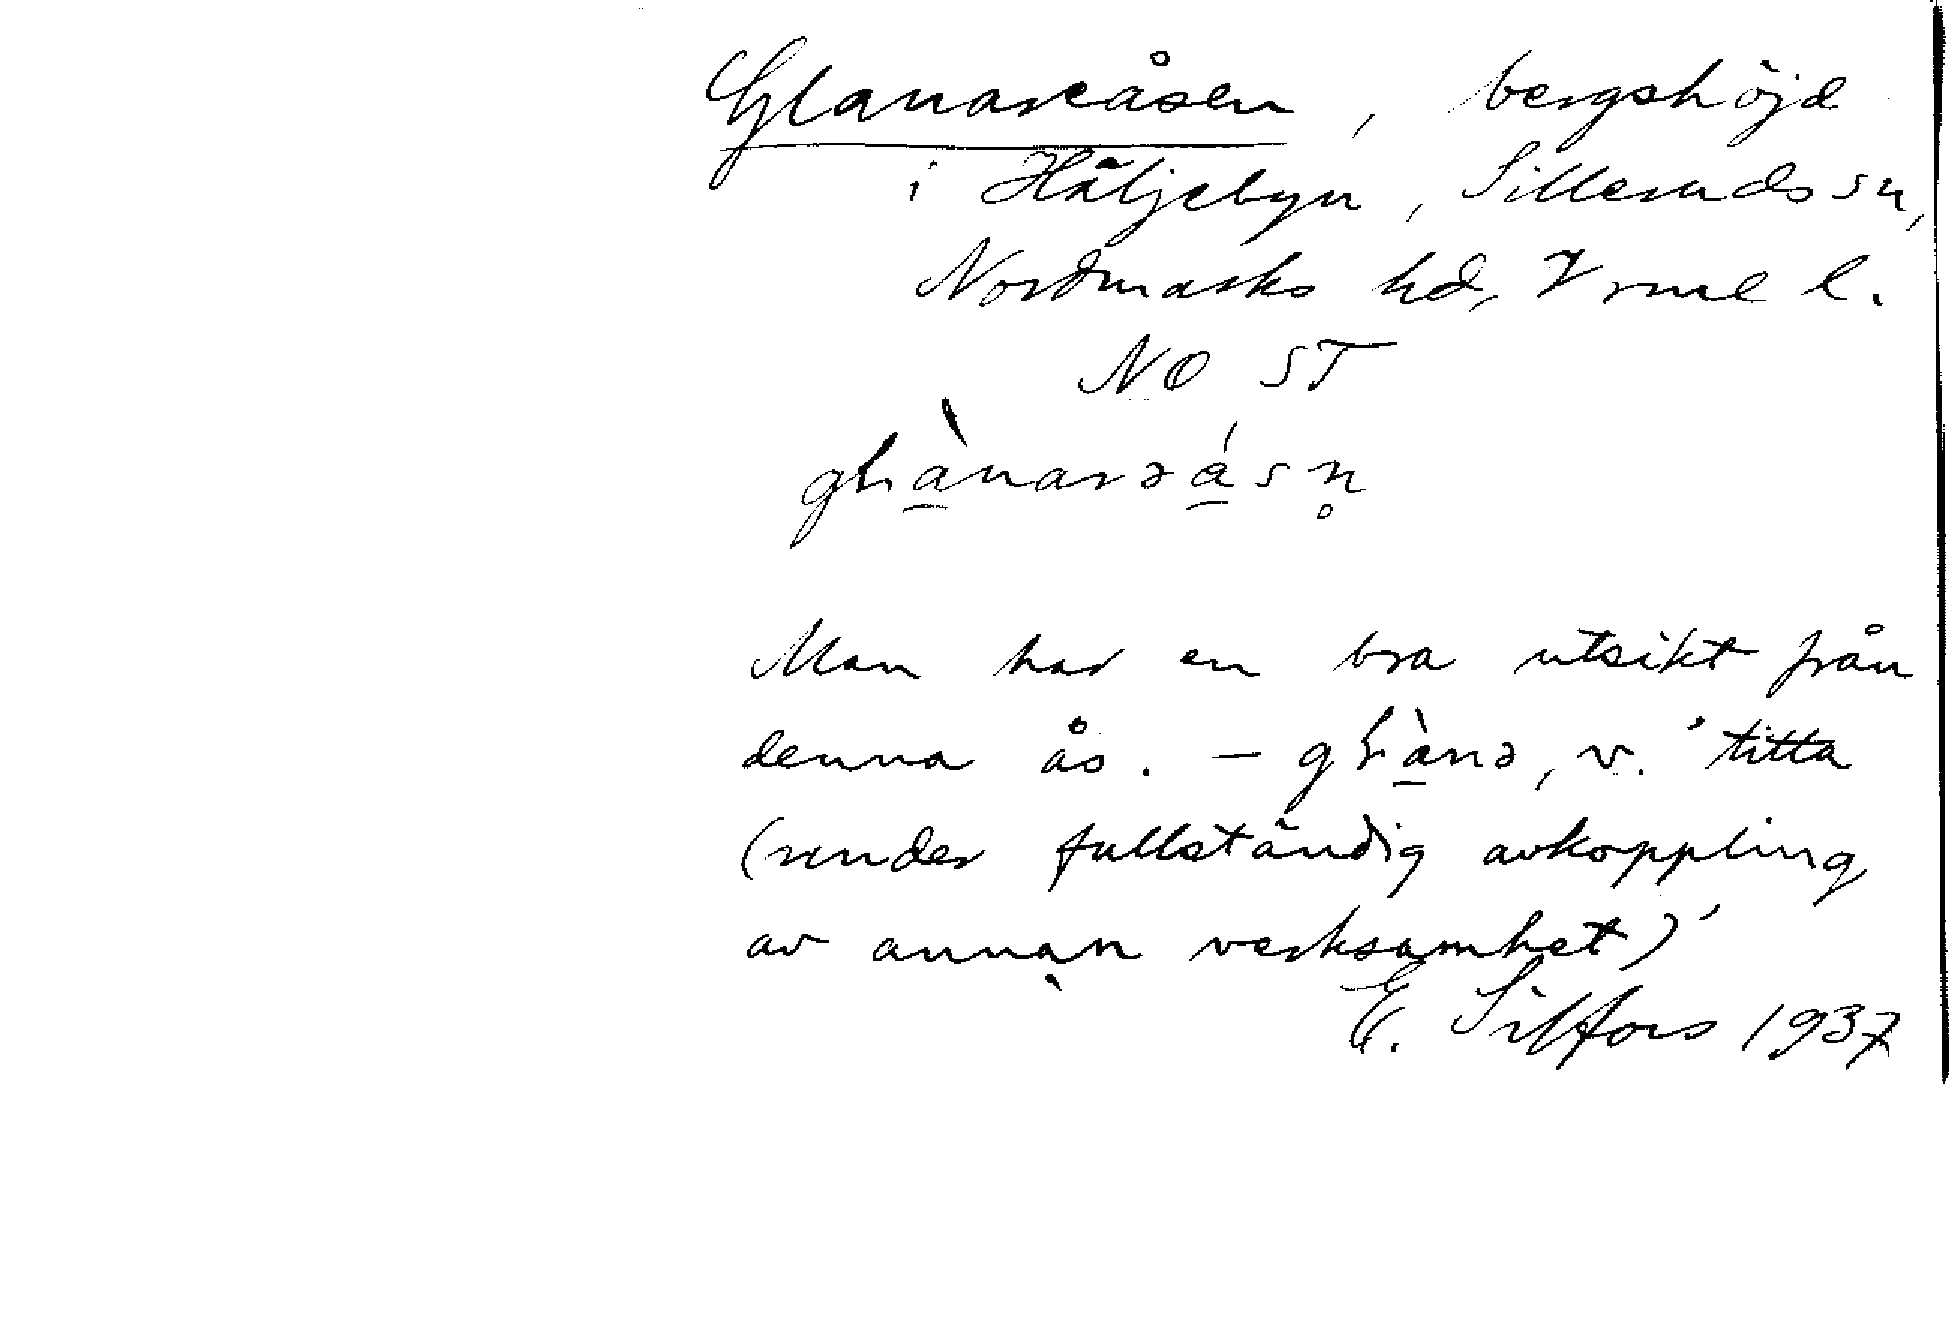 Glanareåsen, bergshöjd
i Häljebyn, Silleruds sn,
Nordmarks hd, Vrml l.
NO ST
gɫànarəásn̥
Man har en bra utsikt från
denna ås. – gɫànə, v. 'titta
(under fullständig avkoppling
av annan verksamhet)'
E. Siffors 1937